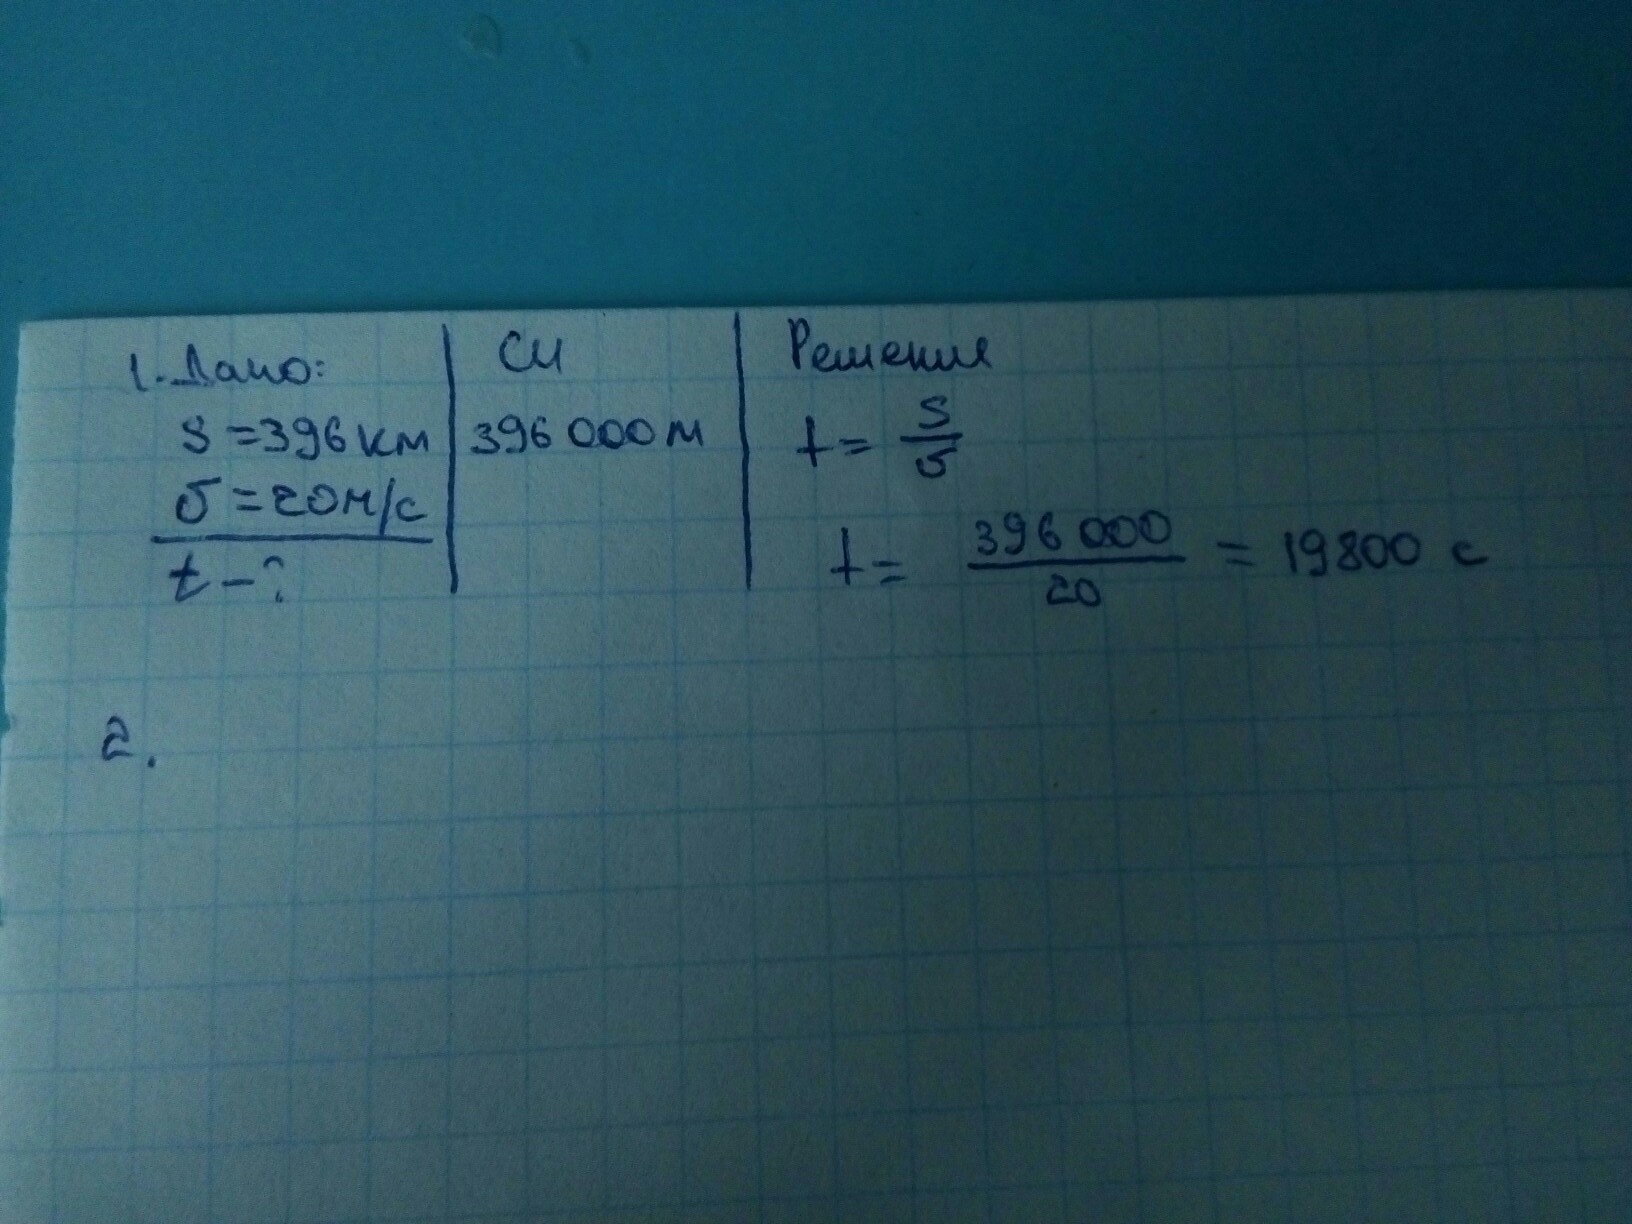 1. Дано:
S = 396 км
υ = 20 м/с
t - ?
СИ
396 000 м
Решение
t = S/υ
t = 396 000/20 = 19800 с
2.